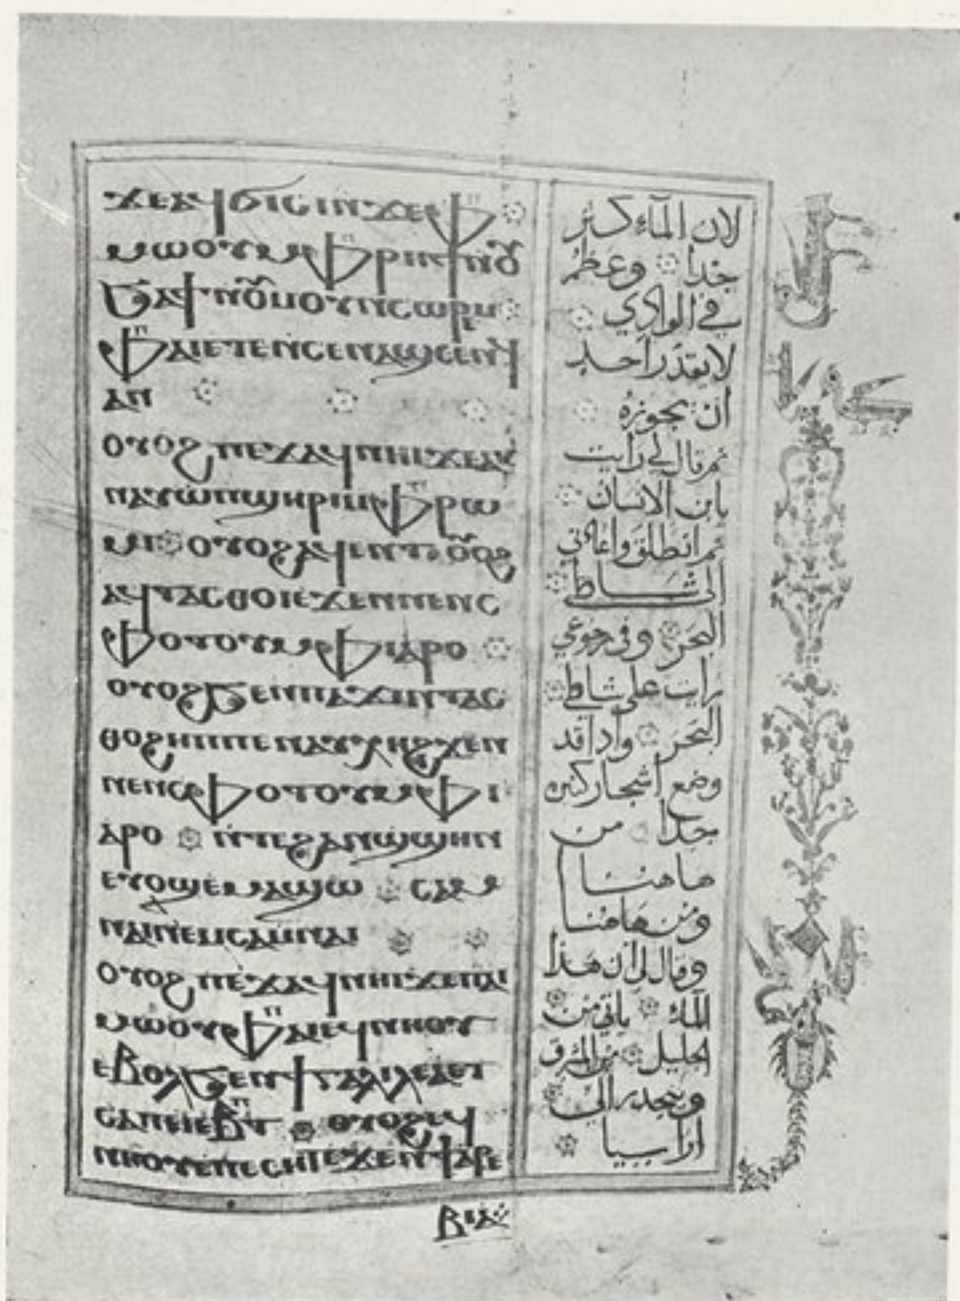 ϫⲉⲁϥϭⲓⲥⲓ ⲛϫⲉⲫ
ⲙⲱⲟⲩ ⲙⲫⲣⲏϯ ⲛⲟⲩ
ⲫⲁⲓ ⲉⲧⲉⲛⲥⲉⲛⲁϣⲥⲉⲛϥ
ⲁⲛ
ⲟⲩⲟϩ ⲡⲉϫⲁϥ ⲛⲏⲓ ϫⲉⲁⲕ
ⲛⲁⲩ ⲱ ⲡϣⲏⲣⲓ ⲙⲫⲣⲱ
ⲙⲓ ⲟⲩⲟϩ ⲁϥⲉⲛⲧ ⲟⲩⲟϩ
ⲁϥⲧⲁⲥⲑⲟⲓ ⲉϫⲉⲛ ⲛⲉⲛⲥ
ⲫⲟⲧⲟⲩ ⲙⲫⲓⲁⲣⲟ
ⲟⲩⲟϩ ϧⲉⲛ ⲡⲁϫⲓⲛⲧⲁⲥ
ⲑⲟ ϩⲏⲡⲡⲉ ⲛⲁⲩⲭⲏ ϩⲓϫⲉⲛ
ⲛⲉⲛⲥⲫⲟⲧⲟⲩ ⲙⲫⲓ
ⲁⲣⲟ ⲛϫⲉϩⲁⲛϣϣⲏⲛ
ⲉⲩⲟϣ ⲉⲙⲁϣⲱ ⲥⲁⲙ
ⲛⲁⲓ ⲛⲉⲙ ⲥⲁⲙⲛⲁⲓ
ⲟⲩⲟϩ ⲡⲉϫⲁϥ ⲛⲏⲓ ϫⲉⲡⲁⲓ
ⲙⲱⲟⲩ ⲫⲁⲓ ⲉϥⲛⲏⲟⲩ
ⲉⲃⲟⲗϧⲉⲛ ϯⲅⲁⲗⲓⲗⲉⲁ ⲉⲧ
ⲥⲁⲡⲉⲓⲉⲃⲧ ⲟⲩⲟϩ ⲉϥ
ⲛⲏⲟⲩ ⲉⲡⲉⲥⲏⲧ ⲉϫⲉⲛ
لان المآء كثر
جدا وعظم
في الوادي
لا يقدر احد
ان يجوزه
ثم قال لي رايت
يابن الانسان
ثم انطلق واعادني
الى شاطي
البحر وفي رجوعي
رايت على شاطي
البحر واذا قد
وضع اشجار كثيره
جدا من
هاهنا
ومن هاهنا
وقال لي ان هذا
الماء ياتي من
الجليل من المشرق
وينحدر الى
ارابيا